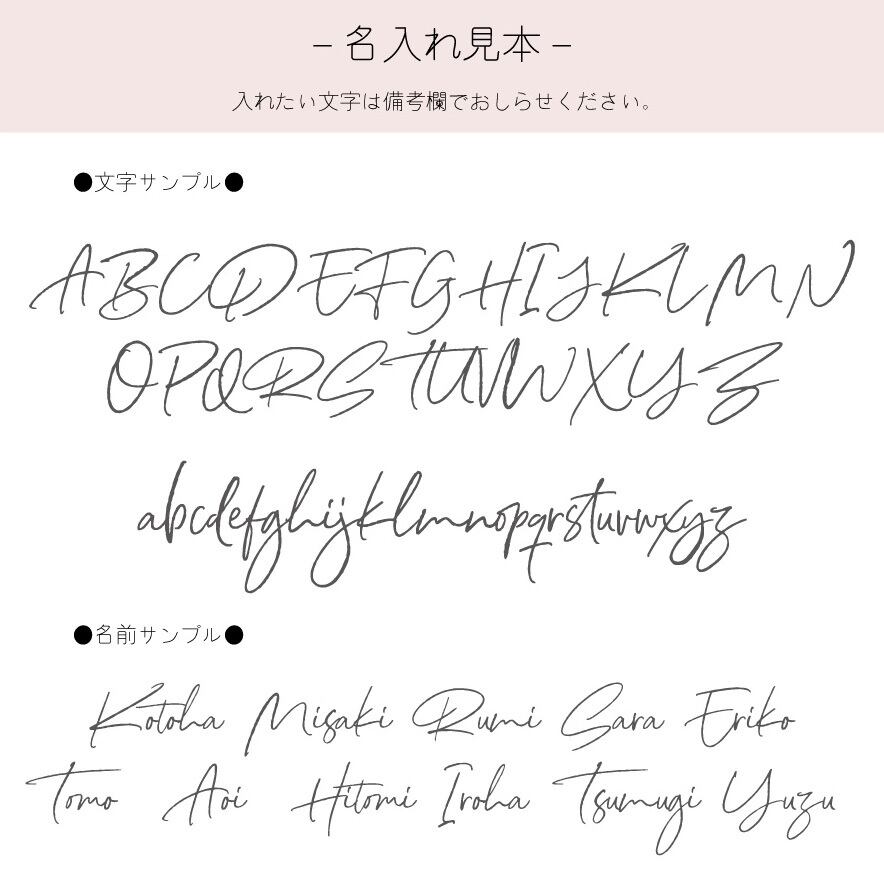 – 名入れ見本 –
入れたい文字は備考欄でおしらせください。
●文字サンプル●
ABCDEFGHIJKLMN
OPQRSTUVWXYZ
abcdefghijklmnopqrstuvwxyz
●名前サンプル●
Kotoha Misaki Rumi Sara Eriko
Tomo Aoi Hitomi Iroha Tsumugi Yuzu